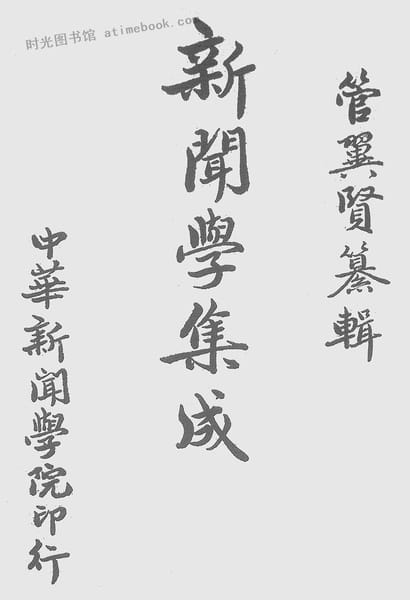 时光图书馆 atimebook.com
管翼賢纂輯
新聞學集成
中華新聞學院印行